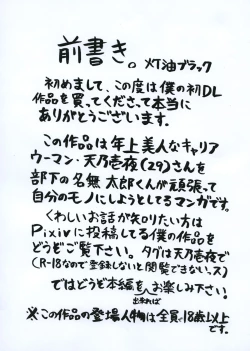 前書き。灯油ブラック
初めまして、この度は僕の初DL
作品を買ってくださって本当に
ありがとうございます。
この作品は年上美人なキャリア
ウーマン・天乃壱夜(29)さんを
部下の名無太郎くんが頑張って
自分のモノにしようとしてるマンガです。
くわしいお話が知りたい方は
Pixivに投稿してる僕の作品を
どうぞご覧下さい。タグは天乃壱夜で
(R-18なので登録しないと閲覧できないっス)
ではどうぞ本編をお楽しみ下さい!
出来れば
※この作品の登場人物は全員18歳以上
です。